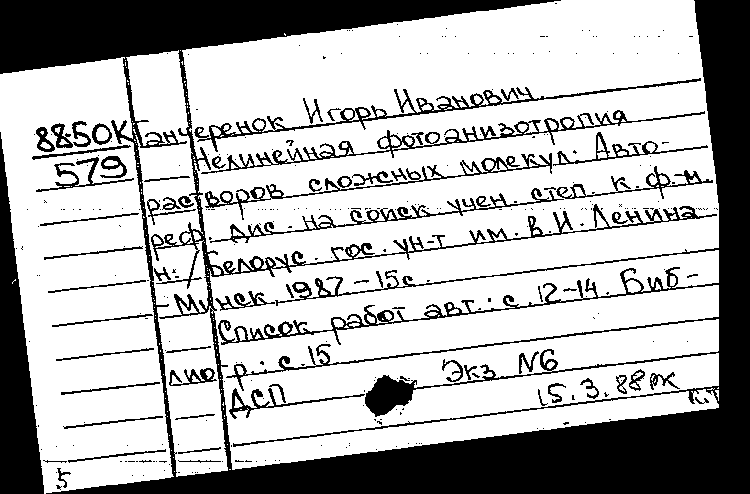 88-50К
579
Ганчеренок Игорь Иванович.
Нелинейная фотоанизотропия
растворов сложных молекул: Авто-
реф. дис. на соиск учен. степ. к. ф.-м.
н: / Белорус. гос. ун-т им. В. И. Ленина
- Минск, 1987 - 15с.
Список работ авт.: с. 12-14. Биб-
лиогр.: с. 15
ДСП
Экз N6
15.3.88
К.Т
5